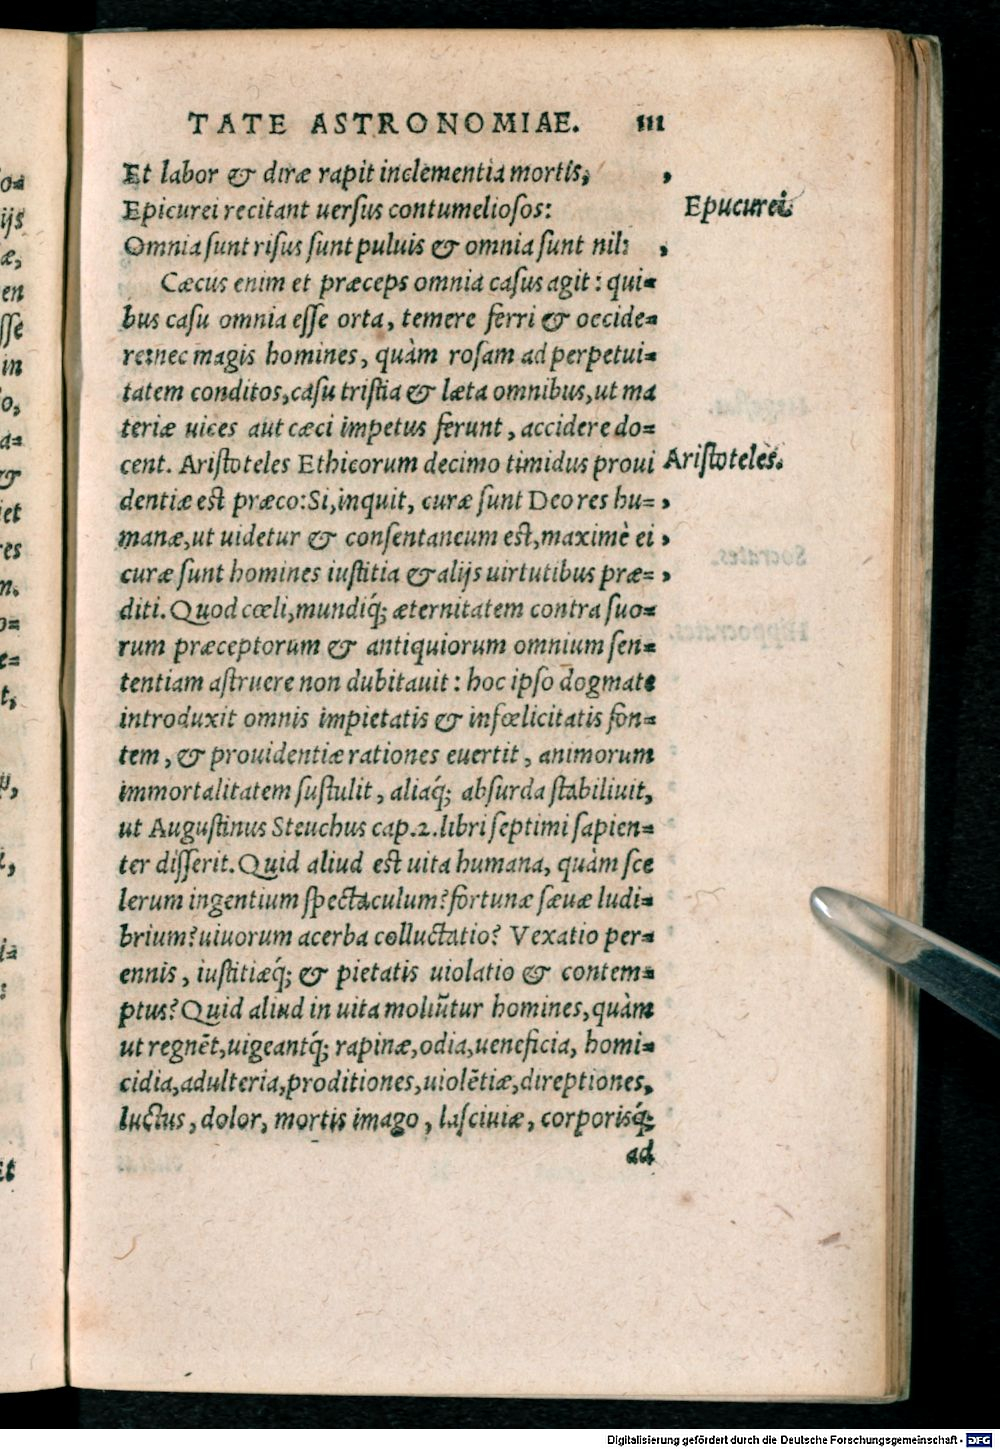 TATE ASTRONOMIAE. III
Et labor & diræ rapit inclementia mortis, ,
Epicurei recitant uersus contumeliosos:
Epucurei.
Omnia sunt risus sunt puluis & omnia sunt nil: ,
Cæcus enim et præceps omnia casus agit: qui=
bus casu omnia esse orta, temere ferri & occide=
re: nec magis homines, quàm rosam ad perpetui=
tatem conditos, casu tristia & læta omnibus, ut ma
teriæ uices aut cæci impetus ferunt, accidere do=
cent. Aristoteles Ethicorum decimo timidus proui
Aristoteles.
dentiæ est præco: Si, inquit, curæ sunt Deo res hu= ,
manæ, ut uidetur & consentaneum est, maximè ei ,
curæ sunt homines iustitia & alijs uirtutibus præ= ,
diti. Quod cœli, mundiq́; æternitatem contra suo=
rum præceptorum & antiquiorum omnium sen=
tentiam astruere non dubitauit: hoc ipso dogmate
introduxit omnis impietatis & infœlicitatis fon=
tem, & prouidentiæ rationes euertit, animorum
immortalitatem sustulit, aliaq́; absurda stabiliuit,
ut Augustinus Steuchus cap.2. libri septimi sapien=
ter disserit. Quid aliud est uita humana, quàm sce
lerum ingentium spectaculum? fortunæ sæuæ ludi=
brium? uiuorum acerba colluctatio? Vexatio per=
ennis, iustitiæq́; & pietatis uiolatio & contem=
ptus? Quid aliud in uita moliũtur homines, quàm
ut regnẽt, uigeantq́; rapinæ, odia, ueneficia, homi=
cidia, adulteria, proditiones, uiolẽtiæ, direptiones,
luctus, dolor, mortis imago, lasciuiæ, corporisq́;
ad
Digitalisierung gefördert durch die Deutsche Forschungsgemeinschaft - DFG